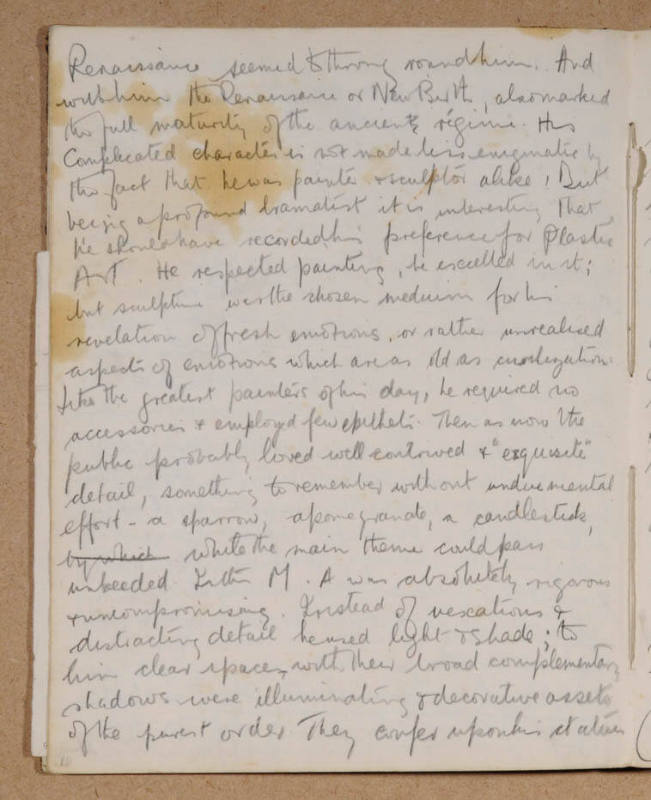 Renaissance seemed to throng round him. And
with him the Renaissance or New Birth, also marked
the full maturity of the ancient régime. His
Complicated character is not made less enigmatic by
the fact that he was painter & sculptor alike! But
being a profound dramatist it is interesting that
he should have recorded his preference for Plastic
Art. He respected painting, he excelled in it;
but sculpture was the chosen medium for his
revelation of fresh emotions, or rather unrealised
aspects of emotions which are as old as civilization.
Like the greatest painters of his day, he required no
accessories & employed few epithets. Then as now the
public probably loved well contrived & "exquisite"
detail, something to remember without undue mental
effort - a sparrow, a pomegranate, a candlestick,
by which while the main theme could pass
unheeded. In this M. A was absolutely rigorous
& uncompromising. Instead of vexatious &
distracting detail he used light & shade; to
him clear spaces with their broad complementary
shadows were illuminating & decorative assets
of the purest order. They confer upon his statues